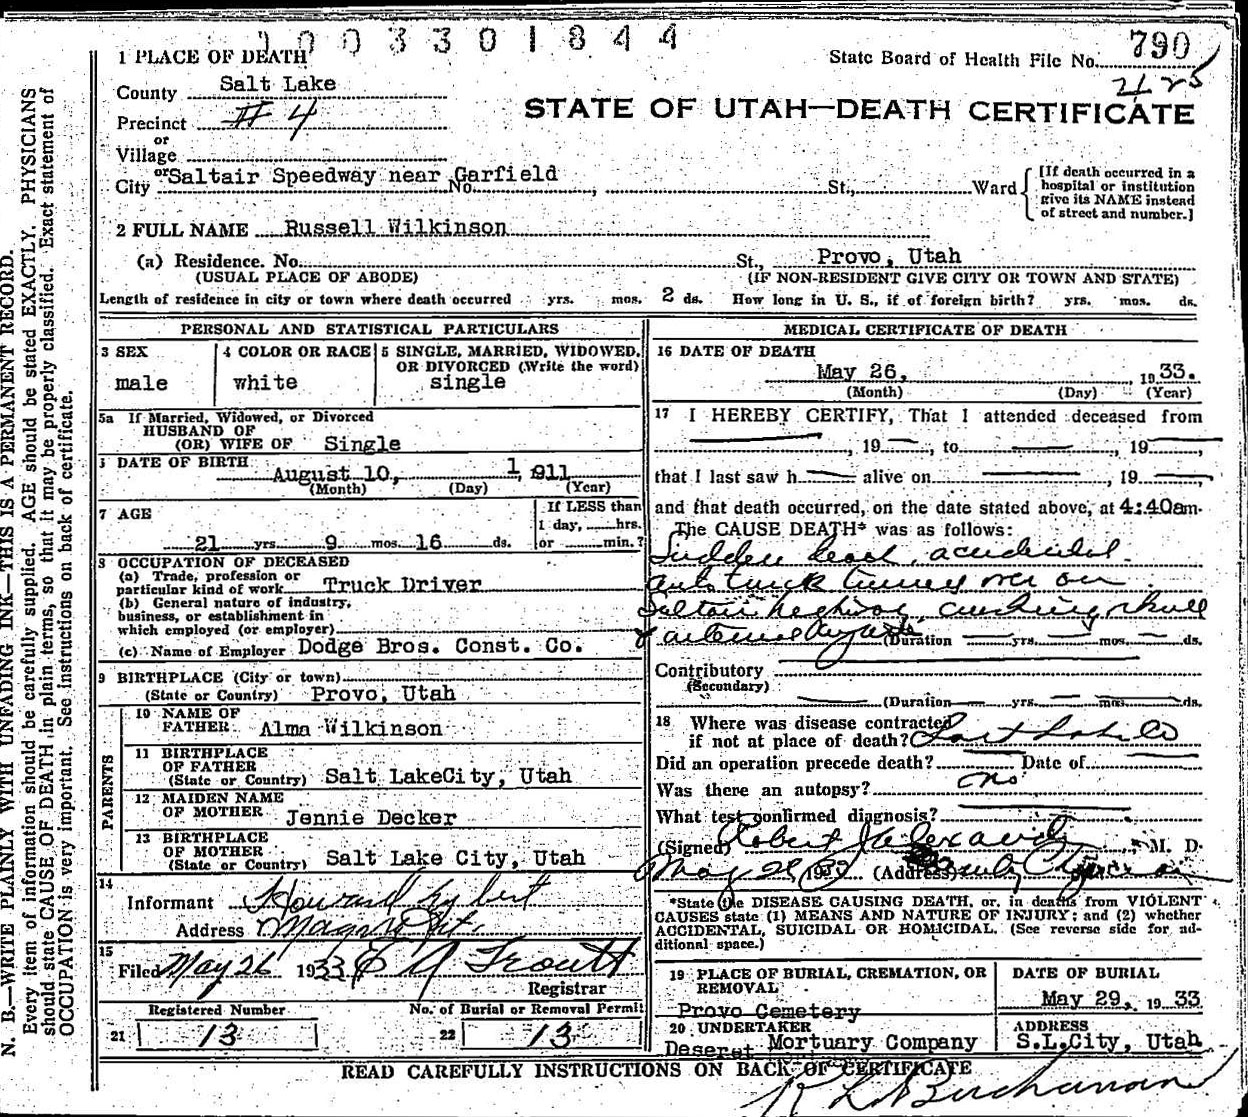 1003301844
State Board of Health File No. 790
2425
1 PLACE OF DEATH
County Salt Lake
STATE OF UTAH—DEATH CERTIFICATE
Precinct # 4
or
Village
or
City Saltair Speedway near Garfield No. , St., Ward
[If death occurred in a
hospital or institution
give its NAME instead
of street and number.]
2 FULL NAME Russell Wilkinson
(a) Residence. No. St., Provo, Utah
(USUAL PLACE OF ABODE) (IF NON-RESIDENT GIVE CITY OR TOWN AND STATE)
Length of residence in city or town where death occurred yrs. mos. 2 ds. How long in U. S., if of foreign birth? yrs. mos. ds.
PERSONAL AND STATISTICAL PARTICULARS
3 SEX
male
4 COLOR OR RACE
white
5 SINGLE, MARRIED, WIDOWED,
OR DIVORCED (Write the word)
single
5a If Married, Widowed, or Divorced
HUSBAND OF
(OR) WIFE OF Single
DATE OF BIRTH
August 10, 1 1911
(Month) (Day) (Year)
7 AGE
If LESS than
1 day, hrs.
21 yrs. 9 mos. 16 ds. or min.?
8 OCCUPATION OF DECEASED
(a) Trade, profession or
particular kind of work Truck Driver
(b) General nature of industry,
business, or establishment in
which employed (or employer)
(c) Name of Employer Dodge Bros. Const. Co.
9 BIRTHPLACE (City or town)
(State or Country) Provo, Utah
PARENTS
10 NAME OF
FATHER Alma Wilkinson
11 BIRTHPLACE
OF FATHER
(State or Country) Salt LakeCity, Utah
12 MAIDEN NAME
OF MOTHER Jennie Decker
13 BIRTHPLACE
OF MOTHER
(State or Country) Salt Lake City, Utah
14
Informant Howard
Address Magna Ut.
15
Filed May 26 1933 E Troutt
Registrar
Registered Number No. of Burial or Removal Permit
21 13 22 13
MEDICAL CERTIFICATE OF DEATH
16 DATE OF DEATH
May 26, 1933.
(Month) (Day) (Year)
17 I HEREBY CERTIFY, That I attended deceased from
, 19 , to , 19 ,
that I last saw h alive on , 19 ,
and that death occurred, on the date stated above, at 4:40am.
The CAUSE DEATH* was as follows:
Sudden death, accidental
auto truck turned over on
Saltair highway crushing skull
& internal (Duration yrs. mos. ds.
Contributory
(Secondary)
(Duration yrs. mos. ds.
18 Where was disease contracted
if not at place of death? Salt Lake Co
Did an operation precede death? Date of
Was there an autopsy? no
What test confirmed diagnosis?
(Signed) Robert Alexander, M. D.
May 26, 1933 (Address) County Physician
*State the DISEASE CAUSING DEATH, or, in deaths from VIOLENT
CAUSES state (1) MEANS AND NATURE OF INJURY; and (2) whether
ACCIDENTAL, SUICIDAL OR HOMICIDAL. (See reverse side for ad-
ditional space.)
19 PLACE OF BURIAL, CREMATION, OR
REMOVAL
Provo Cemetery
DATE OF BURIAL
May 29, 1933
20 UNDERTAKER
Deseret Mortuary Company
ADDRESS
S.L.City, Utah
READ CAREFULLY INSTRUCTIONS ON BACK OF CERTIFICATE
R L Buchanan
N. B.—WRITE PLAINLY WITH UNFADING INK—THIS IS A PERMANENT RECORD.
Every item of information should be carefully supplied. AGE should be stated EXACTLY. PHYSICIANS
should state CAUSE OF DEATH in plain terms, so that it may be properly classified. Exact statement of
OCCUPATION is very important. See instructions on back of certificate.